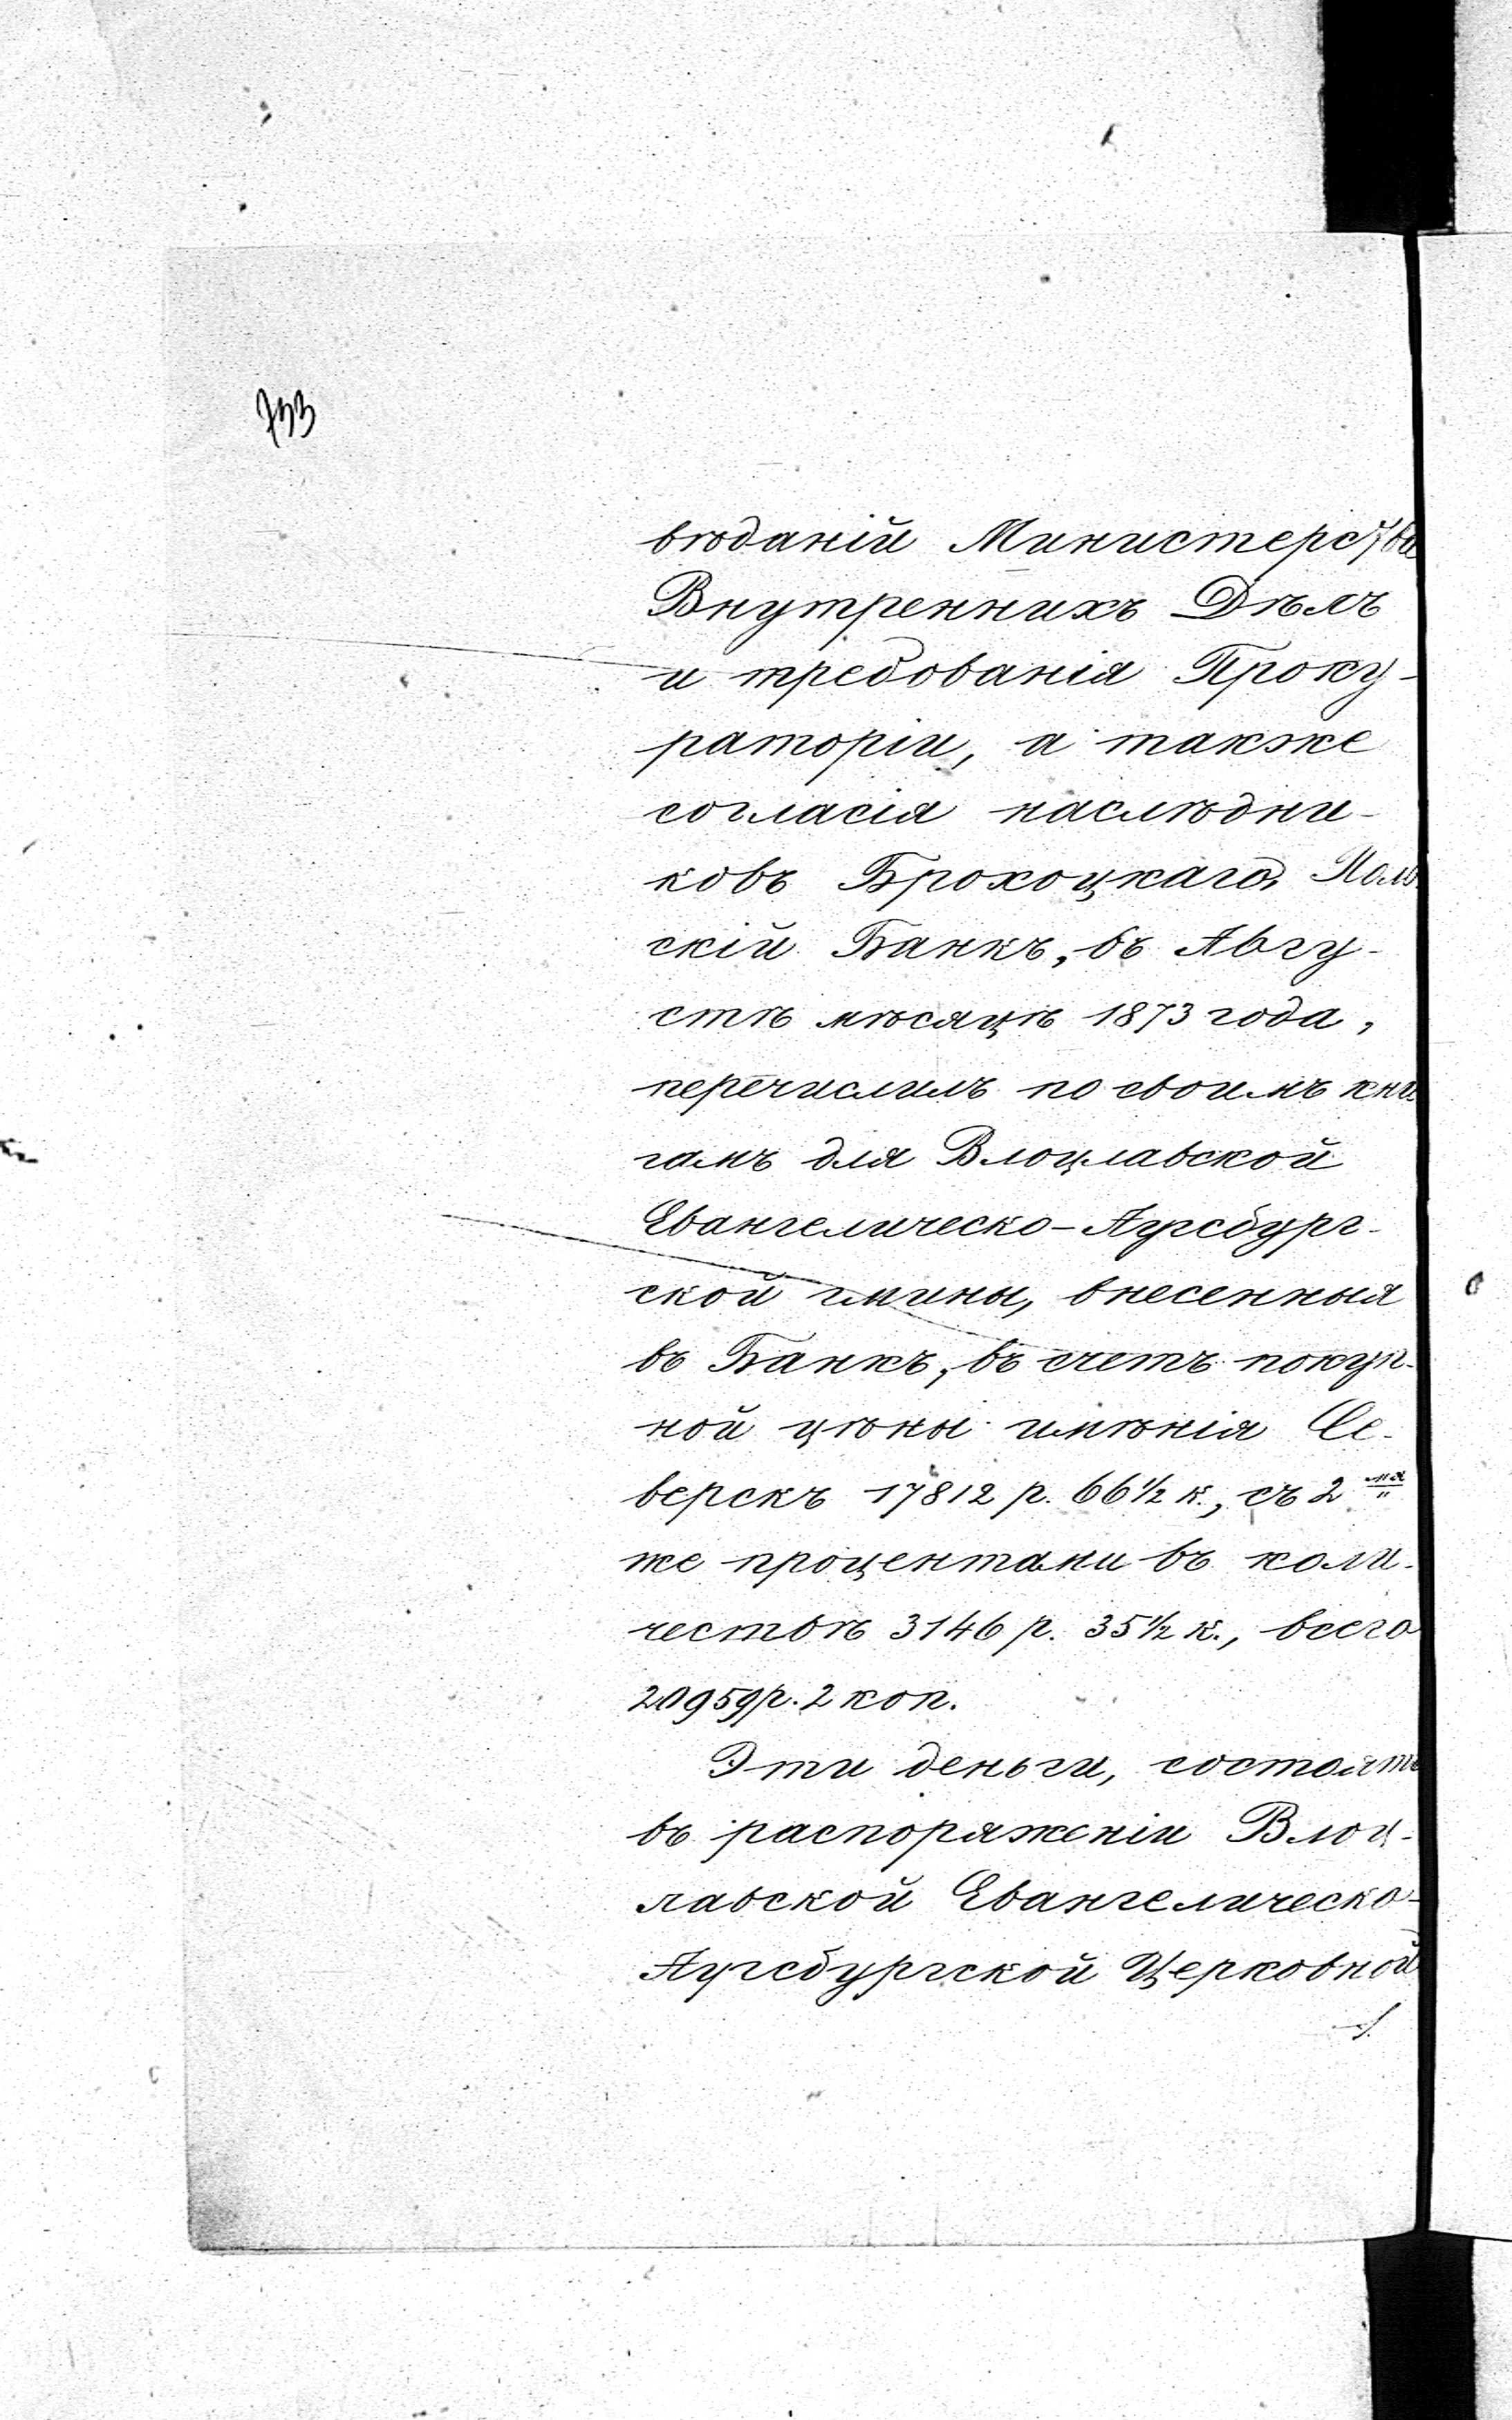 733
вѣданій Министерства
Внутреннихъ Дѣлъ
и требованія Проку-
раторіи, а также
согласія наслѣдни-
ковъ Брохоцкаго, Поль
скій Банкъ, въ Авгу-
стѣ мѣсяцѣ 1873 года,
перечислилъ по своимъ кни
гамъ для Влоцлавской
Евангелическо-Аугсбург-
ской гмины, внесенныя
въ Банкъ, въ счетъ покуп-
ной цѣны имѣнія Се-
верскъ 17812 р. 66 1/2 к., съ 2 мя
же процентами въ коли-
чествѣ 3146 р. 35 1/2 к., всего
20959 р. 2 коп.
Эти деньги, состоятъ
въ распоряженіи Влоц-
лавской Евангелическо-
Аугсбургской Церковной